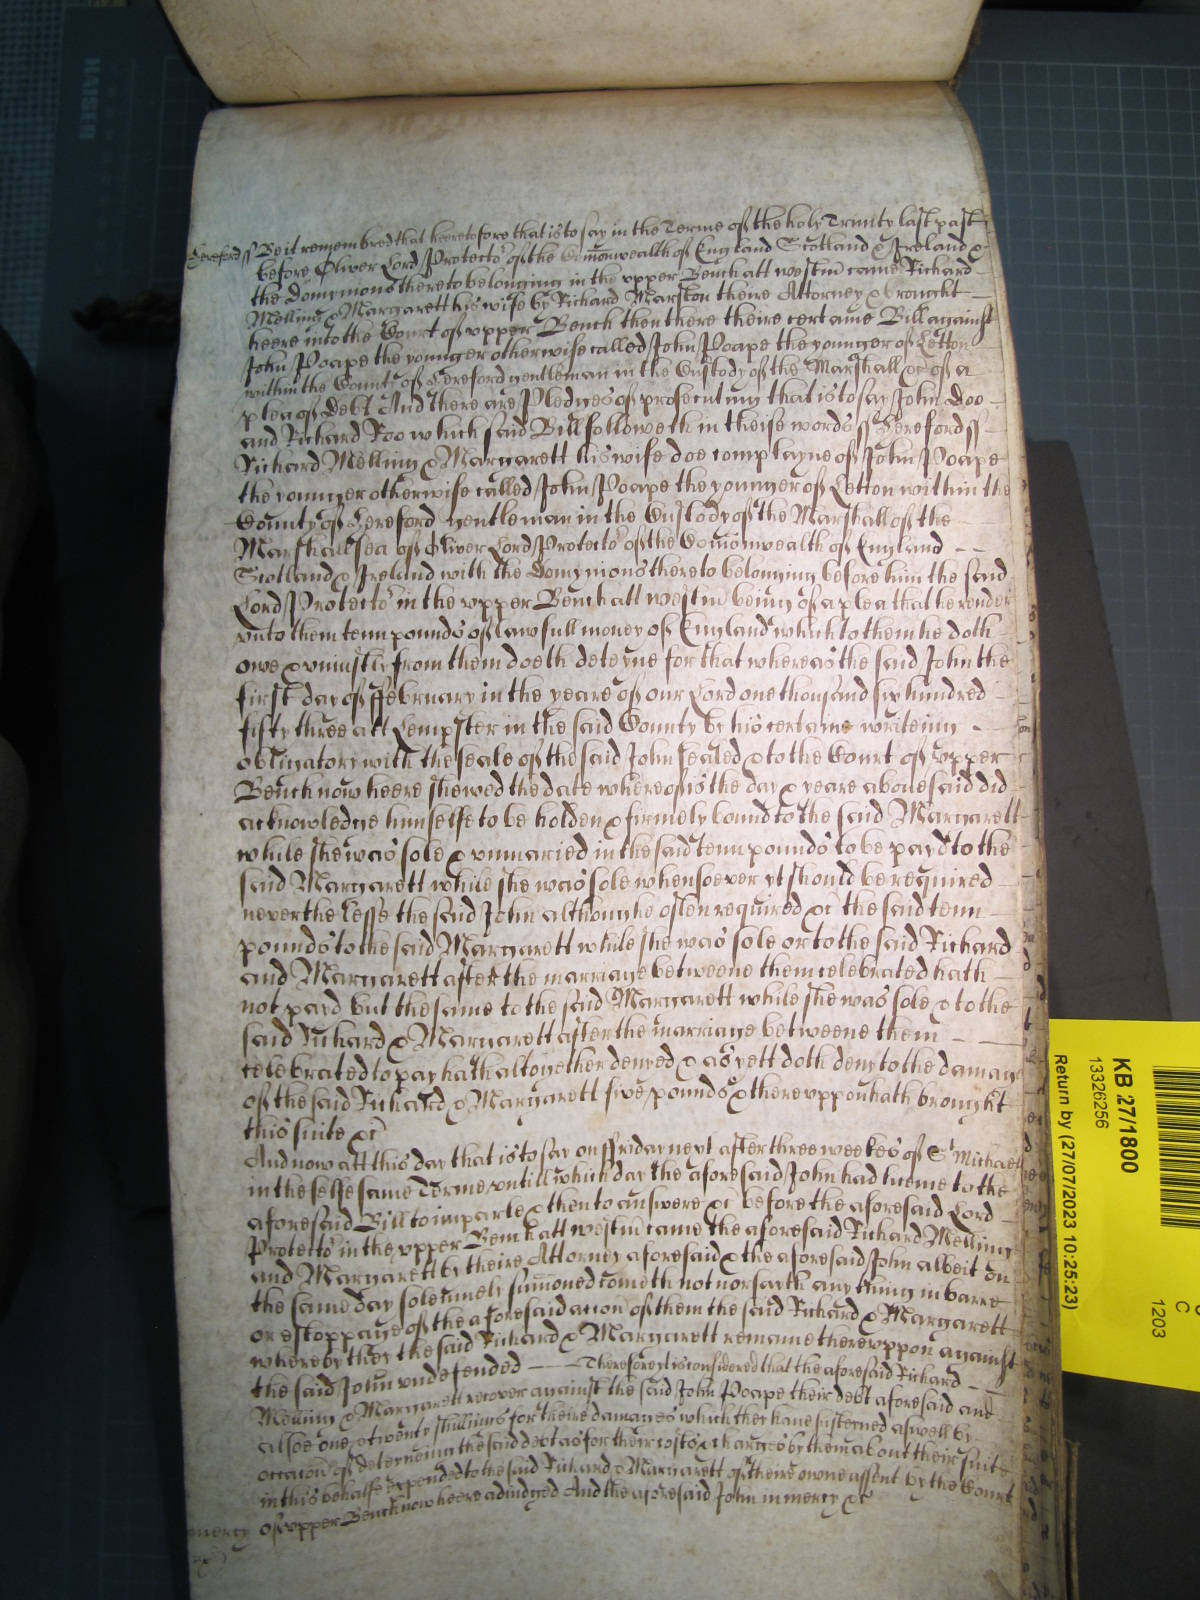 Hereford ss Be it remembred that heeretofore that is to say in the Terme of the holy Trinity last past
before Oliver Lord Protector of the Comonwealth of England Scotland & Ireland &
the domynions thereto belonging in the upper Bench att westm came Richard
Melling & Margarett his wife by Richard Marston theire Attorney & brought
heere into the Court of upper Bench then there theire certaine Bill against
John Poape the younger otherwise called John Poape the younger of Letton
within the County of Hereford gentleman in the Custody of the Marshall &c of a
plea of Debt And there are Pledges of prosecuting that is to say John Doo
and Richard Roo which said Bill followeth in theise words ss Hereford ss
Richard Melling & Margarett his wife doe complayne of John Poape
the younger otherwise called John Poape the younger of Letton within the
County of Hereford gentleman in the Custody of the Marshall of the
Marshallsea of Oliver Lord Protector of the Comonwealth of England
Scotland & Ireland with the Domynions thereto belonging before him the said
Lord Protector in the upper Bench att westm being of a plea that he render
unto them tenn pounds of lawfull money of England which to them he doth
owe & uniustly from them doeth deteyne for that whereas the said John the
first day of ffebruary in the yeare of our Lord one thousand six hundred
fifty three att Lempster in the said County by his certaine writeing
obligatory with the seale of the said John sealed & to the Court of upper
Bench now heere shewed the date whereof is the day & yeare abovesaid did
acknowledge himselfe to be holden & firmely bound to the said Margarett
while she was sole & unmaried in the said tenn pounds to be payd to the
said Margarett while she was sole whensoever yt should be required
neverthelesse the said John although often required &c the said tenn
pounds to the said Margarett while she was sole or to the said Richard
and Margarett after the marriage betweene them celebrated hath
not payd but the same to the said Margarett while she was sole & to the
said Richard & Margarett after the marriage betweene them
celebrated to pay hath altogether denyed & as yett doth deny to the damage
of the said Richard & Margarett five pounds & thereuppon hath brought
this suite &c
And now att this day that is to say on ffriday next after three weekes of St Michael
in the selfe same Terme untill which day the aforesaid John had lycence to the
aforesaid Bill to imparle & then to answere &c before the aforesaid Lord
Protector in the upper Bench att westm came the aforesaid Richard Melling
and Margarett by theire Attorney aforesaid & the aforesaid John albeit on
the same day solemnely sumoned cometh not nor sayth any thing in barre
or estoppage of the aforesaid action of them the said Richard & Margarett
whereby they the said Richard & Margarett remaine thereuppon against
the said John undefended Therefore yt is considered that the aforesaid Richard
Melling & Margarett recover against the said John Poape their debt aforesaid and
alsoe one & twenty shillings for theire damages which they have susteyned aswell by
occacion of deteyneing the said debt as for their costs & charges by them about their suite
in this behalfe expended to the said Richard & Margarett of theire owne assent by the Court
of upper Bench now heere adiudged And the aforesaid John in mercy &c
mercy
KB 27/1800
13326256
Return by (27/07/2023 10:25:23)
C
1203